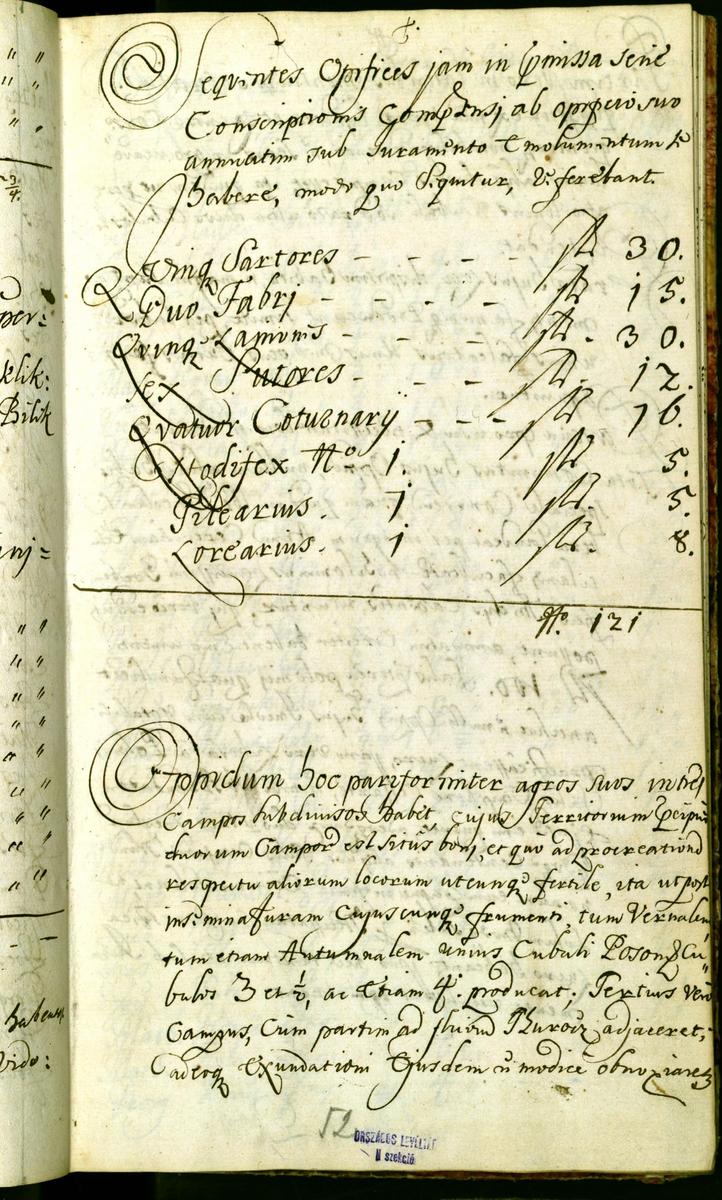 8.
Sequentes Opifices jam in præmissa serie
Conscriptionis Comprensi, ab opificio suo
annuatim sub Juramento Emolumentum se
habere, modo quo Sequitur, referebant.
Quinq Sartores - - - - fl 30.
Duo Fabri - - - - fl 15.
Quinq Lanionis - - - fl. 30.
Sex Sutores - - - fl. 12.
Quatuor Coturnarij - - - fl 16.
Nodifex No 1. fl 5.
Pilearius. 1 fl. 5.
Lorearius. 1 fl. 8.
fl. 121
Oppidum hoc pariformiter agros suos in tres
Campos subdivisos habet, cujus Territorium
duorum Campor est situs boni, et quo ad procreationem
respectu aliorum locorum utcunq fertile, ita ut post
inseminaturam Cujuscunq frumenti, tum Vernalem
tum etiam Autumnalem unius Cubuli Poson Cu-
bulos 3 et 1/2, ac Etiam 4. producat; Tertius Vero
Campus, Cum partim ad fluvium Thurocz adjaceret,
adeoq Exundationi Ejusdem n modice obnoxiaret
52
ORSZÁGOS LEVÉLTÁR
II szekció
per:
klik:
Bilik
nj=
habent
vido: